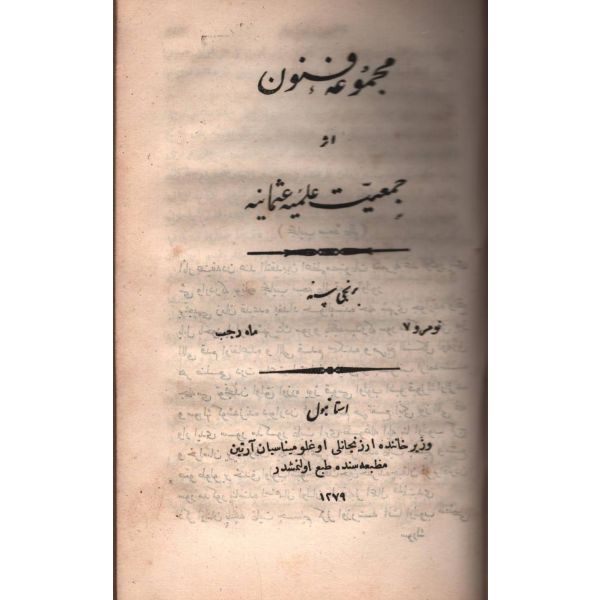 مجموعهٔ فنون
اثر
جمعيّت علميه عثمانيه
برنجى سنه
نومرو ٧ ماه رجب
استانبول
وزير خاننده ارزنجانلى اوغلو ميناسيان آرتين
مطبعه سنده طبع اولنمشدر
١٢٧٩